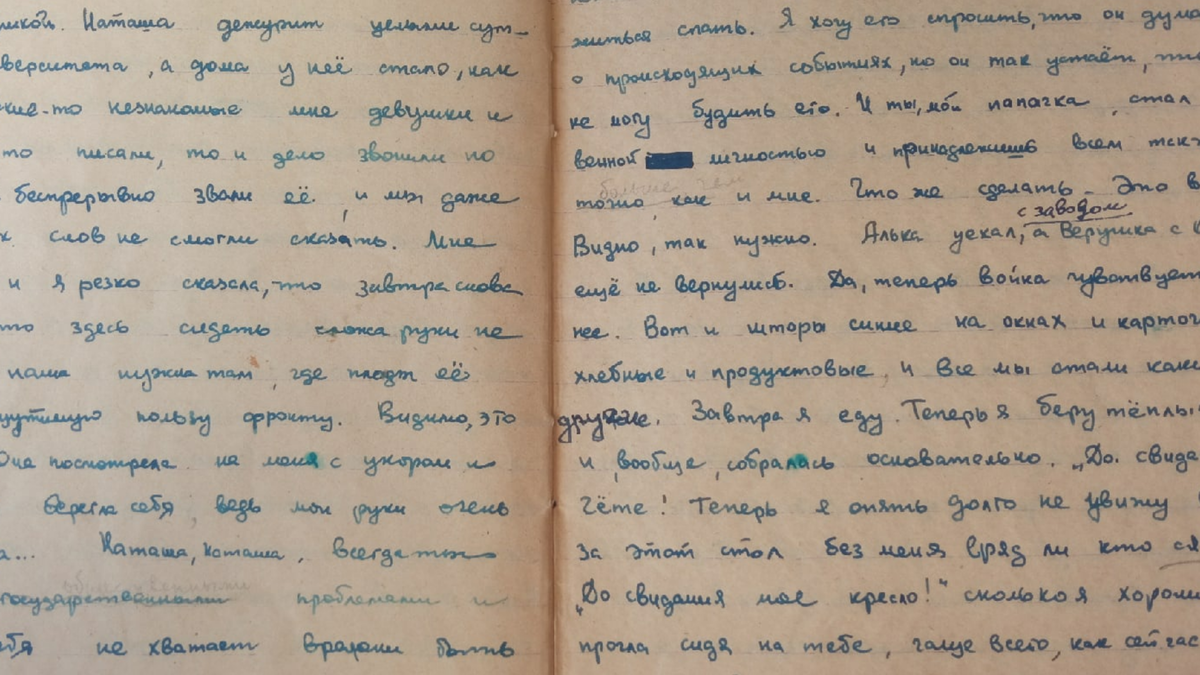 Наташа дежурит целыми сут-
верситета, а дома у неё стало, как
кие-то незнакомые мне девушки и
то писали, то и дело звонили по
беспрерывно звали её, и мы даже
х слов не смогли сказать. Мне
и я резко сказала, что завтра снова
то здесь сидеть сложа руки не
наша нужна там, где плоды её
щутимую пользу фронту. Видимо, это
Она посмотрела на меня с укором и
берегла себя, ведь мои руки очень
а... Наташа, Наташа, всегда ты
общественными
государственными проблемами и
ебя не хватает времени быть
житься спать. Я хочу его спросить, что он дума
о происходящих событиях, но он так устаёт, что
не могу будить его. И ты, мой папочка, стал
венной личностью и принадлежишь всем так
больше чем
точно, как и мне. Что же сделать - Это в
с заводом
Видно, так нужно. Алька уехал, а Верушка с
ещё не вернулись. Да, теперь война чувствует
нее. Вот и шторы синие на окнах и карточ
хлебные и продуктовые, и все мы стали каки
другие. Завтра я еду. Теперь я беру тёплы
и, вообще, собралась основательно. „До свида
чёте! Теперь я опять долго не увижу
За этот стол без меня вряд ли кто ся
„До свидания мое кресло!" сколько я хорош
прочла сидя на тебе, чаще всего, как сейчас